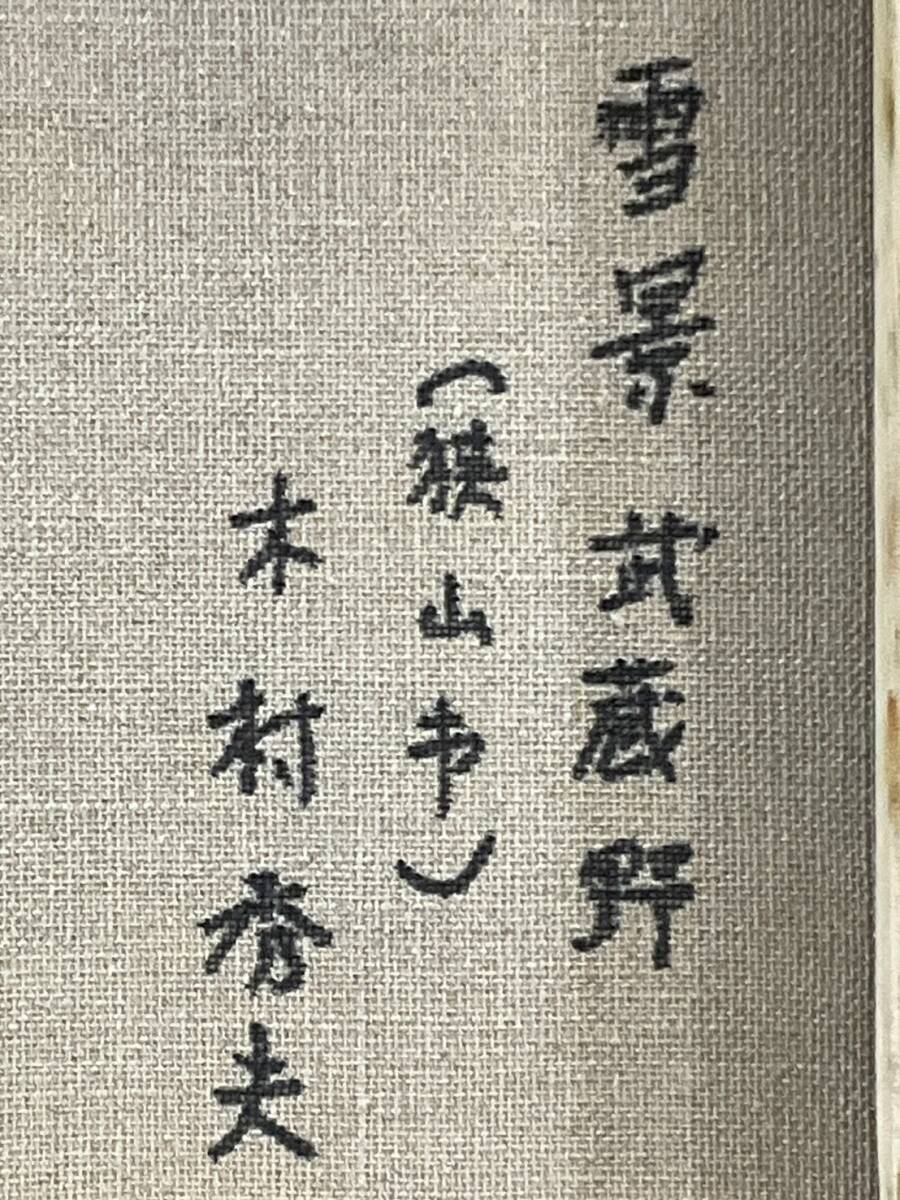 雪景武蔵野
（狭山市）
木村秀夫